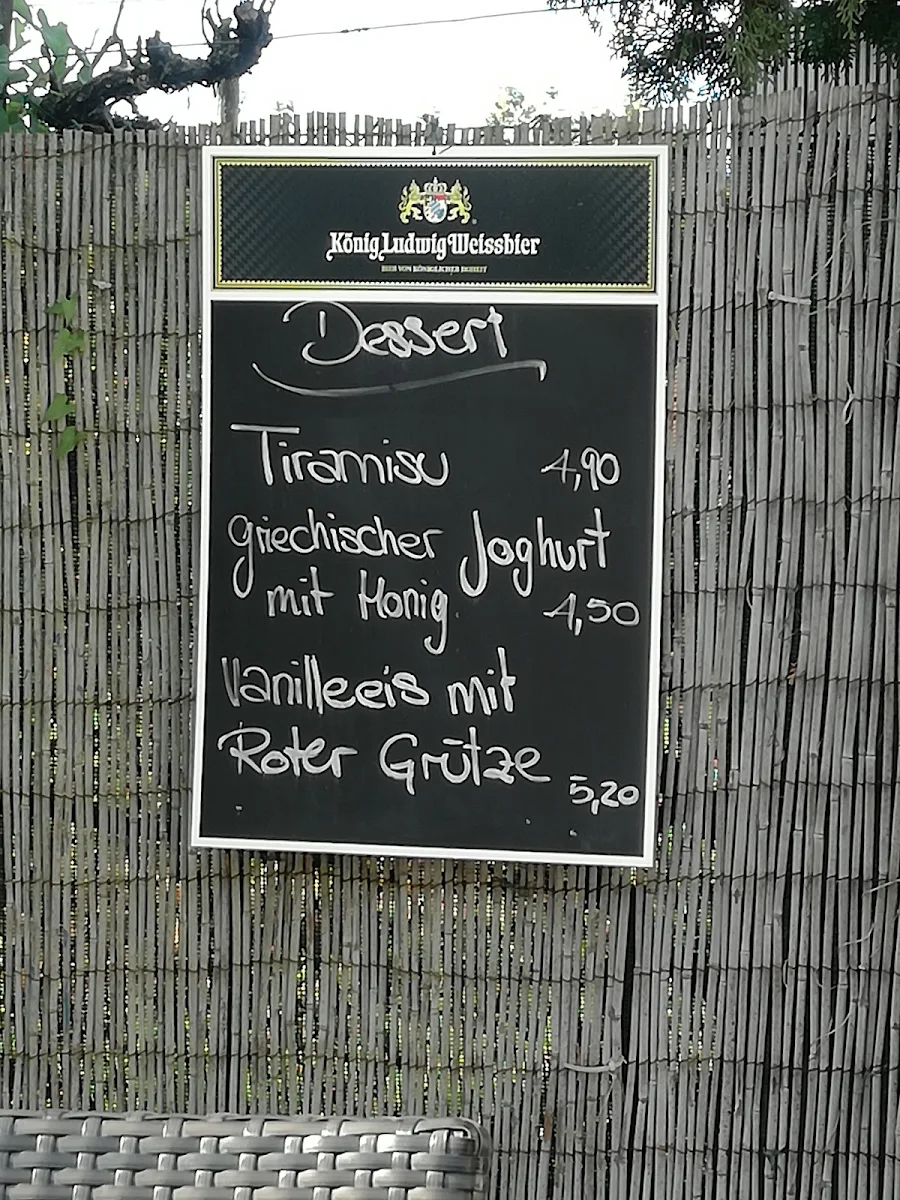 König Ludwig Weissbier
BIER VON KÖNIGLICHER HOHEIT
Dessert
Tiramisu 4,90
griechischer Joghurt
mit Honig 4,50
Vanilleeis mit
Roter Grütze
5,20